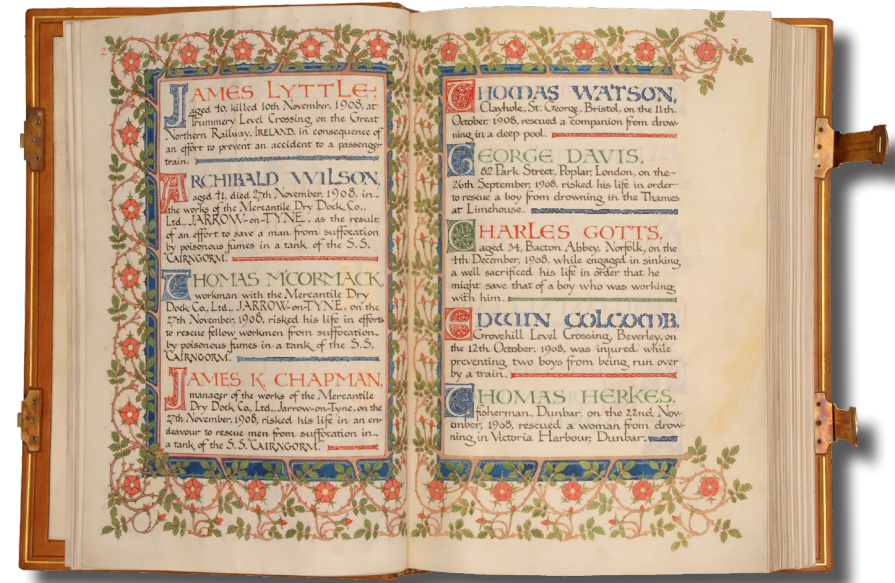 2
JAMES LYTTLE:
aged 40, killed 10th November, 1908, at
Trummery Level Crossing on the Great
Northern Railway, IRELAND, in consequence of
an effort to prevent an accident to a passenger
train.
ARCHIBALD WILSON,
aged 41, died 27th November, 1908, in
the works of the Mercantile Dry Dock Co.,
Ltd., JARROW-on-TYNE, as the result
of an effort to save a man from suffocation
by poisonous fumes in a tank of the S.S.
"CAIRNGORM".
THOMAS McCORMACK,
workman with the Mercantile Dry
Dock Co., Ltd., JARROW-on-TYNE, on the
27th November, 1908, risked his life in efforts
to rescue fellow workmen from suffocation
by poisonous fumes in a tank of the S.S.
"CAIRNGORM".
JAMES K. CHAPMAN,
manager of the works of the Mercantile
Dry Dock Co., Ltd., Jarrow-on-Tyne, on the
27th November, 1908, risked his life in an en-
deavour to rescue men from suffocation in
a tank of the S.S. "CAIRNGORM".
3
THOMAS WATSON,
Clayhole, St. George, Bristol, on the 11th
October, 1908, rescued a companion from drow-
ning in a deep pool.
GEORGE DAVIS,
82 Park Street, Poplar, London, on the
26th September, 1908, risked his life in order
to rescue a boy from drowning in the Thames
at Limehouse.
CHARLES GOTTS,
aged 34, Bacton Abbey, Norfolk, on the
4th December, 1908, while engaged in sinking
a well sacrificed his life in order that he
might save that of a boy who was working
with him.
EDWIN COLCOMB,
Grovehill Level Crossing, Beverley, on
the 12th October, 1908, was injured while
preventing two boys from being run over
by a train.
THOMAS HERKES,
fisherman, Dunbar, on the 22nd Nov-
ember, 1908, rescued a woman from drow-
ning in Victoria Harbour, Dunbar.